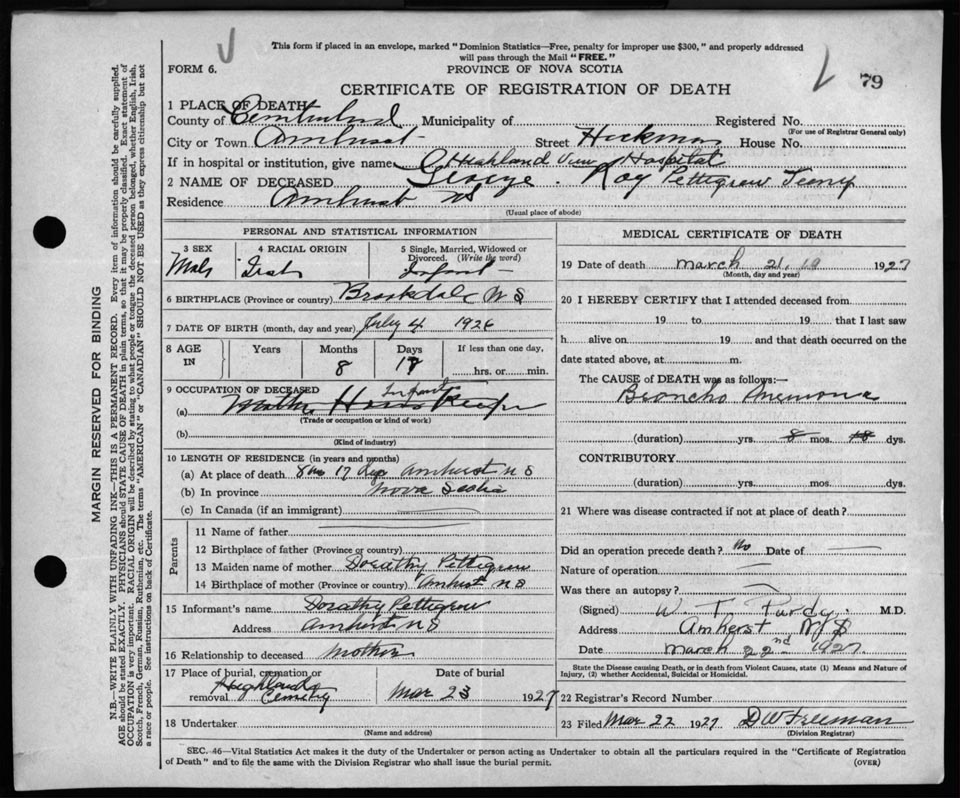 This form if placed in an envelope, marked "Dominion Statistics—Free, penalty for improper use $300," and properly addressed
will pass through the Mail "FREE."
FORM 6.
PROVINCE OF NOVA SCOTIA
79
CERTIFICATE OF REGISTRATION OF DEATH
1 PLACE OF DEATH
County of Cumberland Municipality of Registered No.
(For use of Registrar General only)
City or Town Amherst Street Hickman House No.
If in hospital or institution, give name Highland View Hospital
2 NAME OF DECEASED George Roy Pettigrew
Residence Amherst NS
(Usual place of abode)
PERSONAL AND STATISTICAL INFORMATION
3 SEX 4 RACIAL ORIGIN 5 Single, Married, Widowed or Divorced. (Write the word)
Male Irish Infant
6 BIRTHPLACE (Province or country) Brookdale N S
7 DATE OF BIRTH (month, day and year) July 4 1926
8 AGE IN Years Months Days If less than one day,
8 17 hrs. or min.
9 OCCUPATION OF DECEASED Infant
(a) Mother House Keeper
(Trade or occupation or kind of work)
(b)
(Kind of industry)
10 LENGTH OF RESIDENCE (in years and months)
(a) At place of death 8 mo 17 days Amherst N S
(b) In province Nova Scotia
(c) In Canada (if an immigrant)
Parents
11 Name of father
12 Birthplace of father (Province or country)
13 Maiden name of mother Dorothy Pettigrew
14 Birthplace of mother (Province or country) Amherst N S
15 Informant's name Dorothy Pettigrew
Address Amherst N S
16 Relationship to deceased mother
17 Place of burial, cremation or removal Date of burial
Highland Cemetery Mar 23 1927
18 Undertaker
(Name and address)
MEDICAL CERTIFICATE OF DEATH
19 Date of death March 21, 19 1927
(Month, day and year)
20 I HEREBY CERTIFY that I attended deceased from
19 to 19 that I last saw
h alive on 19 and that death occurred on the
date stated above, at m.
The CAUSE OF DEATH was as follows:—
Broncho Pnemonia
(duration) yrs. 8 mos. 18 dys.
CONTRIBUTORY
(duration) yrs. mos. dys.
21 Where was disease contracted if not at place of death?
Did an operation precede death? No Date of
Nature of operation
Was there an autopsy?
(Signed) W T Purdy M.D.
Address Amherst N S
Date March 22nd 1927
State the Disease causing Death, or in death from Violent Causes, state (1) Means and Nature of
Injury, (2) whether Accidental, Suicidal or Homicidal.
22 Registrar's Record Number
23 Filed Mar 22 1927 D W Freeman
(Division Registrar)
SEC. 46—Vital Statistics Act makes it the duty of the Undertaker or person acting as Undertaker to obtain all the particulars required in the "Certificate of Registration
of Death" and to file the same with the Division Registrar who shall issue the burial permit.
(OVER)
MARGIN RESERVED FOR BINDING
N.B.—WRITE PLAINLY WITH UNFADING INK—THIS IS A PERMANENT RECORD. Every item of information should be carefully supplied.
AGE should be stated EXACTLY. PHYSICIANS should STATE CAUSE OF DEATH in plain terms, so that it may be properly classified. Exact statement of
OCCUPATION is very important. RACIAL ORIGIN will be described by stating to what people or tongue the deceased person belonged, whether English, Irish,
Scotch, French, German, Russian, Ruthenian, etc. The terms "AMERICAN" or "CANADIAN" SHOULD NOT BE USED as they express citizenship but not
a race or people. See instructions on back of Certificate.